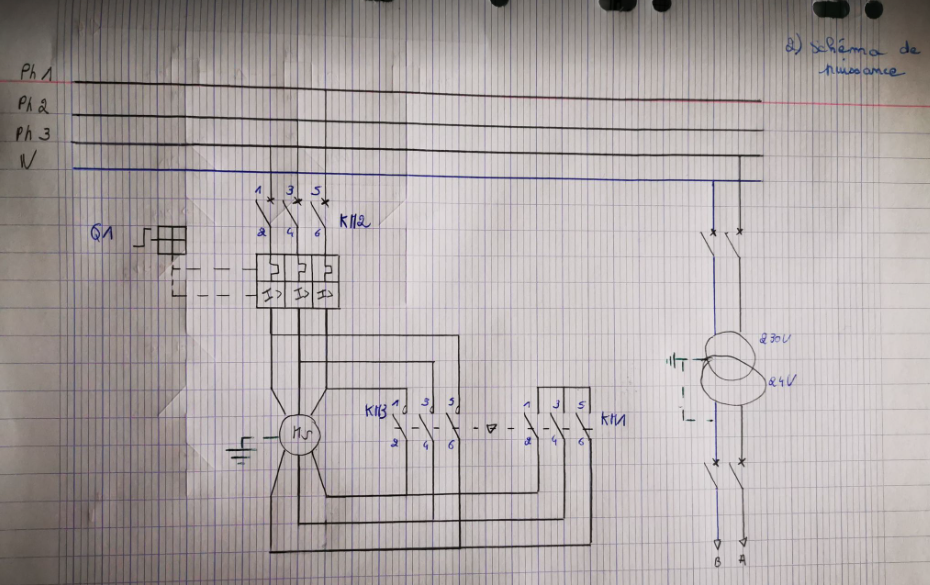 2) schéma de
puissance
Ph 1
Ph 2
Ph 3
N
1 3 5
KM2
2 4 6
Q1
I> I> I>
230V
24V
KM3
1 3 5
2 4 6
1 3 5
KM1
2 4 6
B A